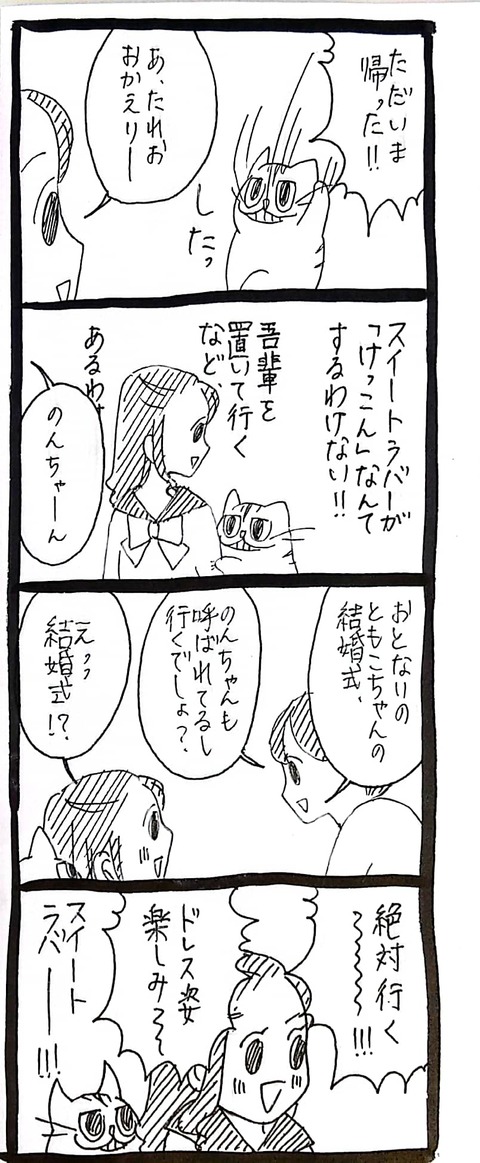 ただいま
帰った!!
あ、たれお
おかえりー
したっ
スイートラバーが
「けっこん」なんて
するわけない!!
吾輩を
置いて行く
など、
あるわ
のんちゃーん
おとないの
ともこちゃんの
結婚式、
のんちゃんも
呼ばれてるし
行くでしょ?
えッッ
結婚式!?
絶対行く
〜〜〜〜!!!
ドレス姿
楽しみ〜〜
スイート
ラバー!!!